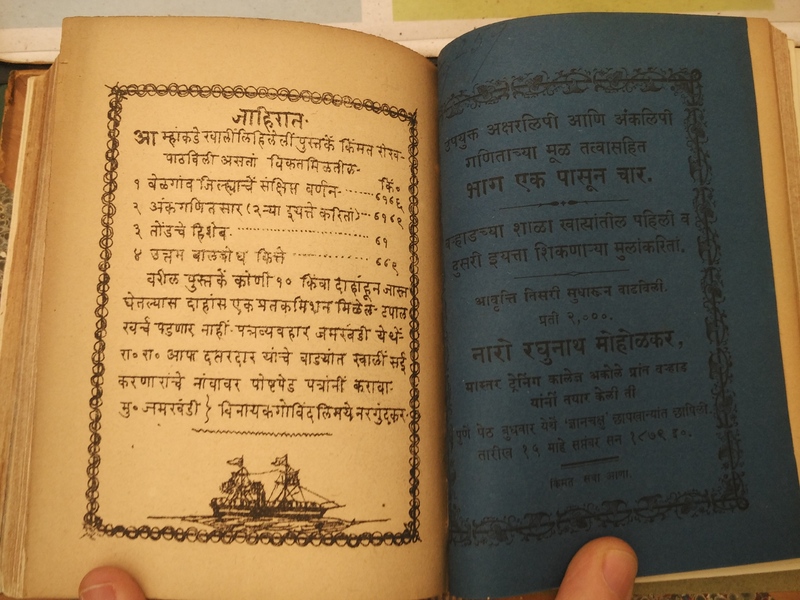 जाहिरात.
आम्हांकडे खालीं लिहिलेलीं पुस्तकें किंमत रोख-
पाठविली असतां विकत मिळतील.
किं०
१ बेळगांव जिल्ह्याचें संक्षिप्त वर्णन
२ अंकगणितसार (२ऱ्या इयत्ते करितां)
३ तोंडचे हिशेब
४ उत्तम बाळबोध कित्ते
वरील पुस्तकें कोणी १० किंवा दाहांहून जास्त
घेतल्यास दाहांस एक प्रत कमिशन मिळेल. टपाल
खर्च पडणार नाहीं. पत्रव्यवहार जमखंडी येथें-
रा० रा० आपा दप्तरदार यांचे वाड्यांत खालीं सई
करणारांचे नांवावर पोष्टपेड पत्रांनीं करावा-
मु० जमखंडी } विनायक गोविंद लिमये नरगुंदकर.
उपयुक्त अक्षरलिपी आणि अंकलिपी
गणिताच्या मूळ तत्वासहित
भाग एक पासून चार.
वऱ्हाडच्या शाळा खात्यांतील पहिली व
दुसरी इयत्ता शिकणाऱ्या मुलांकरितां.
आवृत्ति तिसरी सुधारून वाढविली.
प्रती २,०००.
नारो रघुनाथ मोहोळकर,
मास्तर ट्रेनिंग कालेज अकोले प्रांत वऱ्हाड
यांनीं तयार केली ती
पुणें पेठ बुधवार येथें "ज्ञानचक्षु" छापखान्यांत छापिली.
तारीख १५ माहे सप्तंबर सन १८७९ इ०.
किंमत सवा आणा.